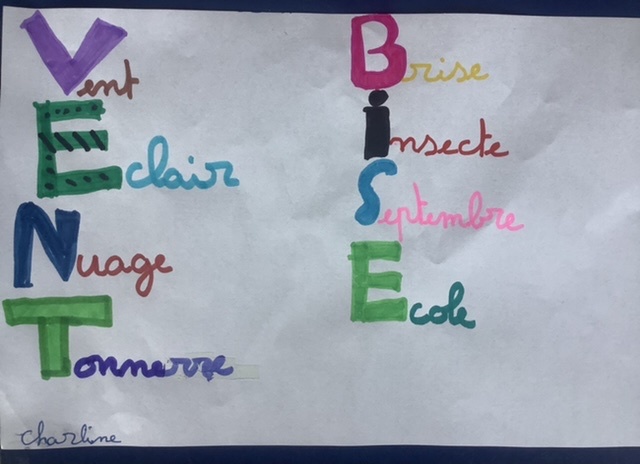 Vent
Eclair
Nuage
Tonnerre
Brise
insecte
Septembre
Ecole
Charline